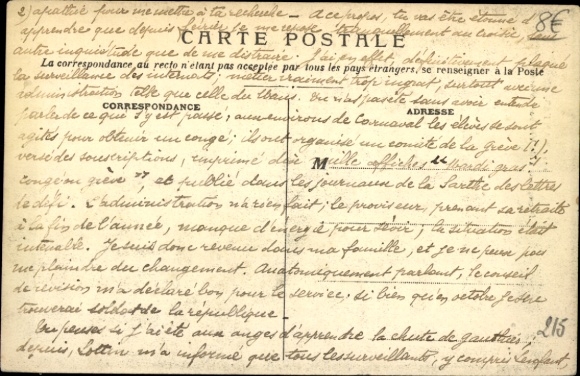 2) apathie pour me mettre à ta recherche — A ce propos, tu vas être étonné d'
apprendre que depuis je me repose tranquillement au Croisic, sans
8€
CARTE POSTALE
autre inquiétude que de me distraire. J'ai en effet, définitivement plaqué
La correspondance au recto n'étant pas acceptée par tous les pays étrangers, se renseigner à la Poste
la surveillance des internats; métier vraiment trop ingrat, surtout avec une
administration telle que celle du Mans. Tu n'es pas sans avoir entendu
CORRESPONDANCE
ADRESSE
parler de ce qui s'y est passé; aux environs de Carnaval les élèves se sont
agités pour obtenir un congé; ils ont organisé un comité de la grève (!),
versé des souscriptions, imprimé deux mille affiches "Mardi gras
M
congé ou grève", et publié dans les journaux de la Sarthe des lettres
de défi. L'administration n'a rien fait; le proviseur prenant sa retraite
à la fin de l'année, manque d'énergie pour sévir, la situation était
intenable. Je suis donc revenu dans ma famille, et je ne puis pas
me plaindre du changement. Anatomiquement parlant, le conseil
de révision m'a déclaré bon pour le service; si bien qu'en octobre je me
trouverai soldat de la république —
Tu penses si j'ai été aux anges d'apprendre la chute de Gauthier;
215
depuis, Lottin m'a informé que tous les surveillants, y compris l'enfant